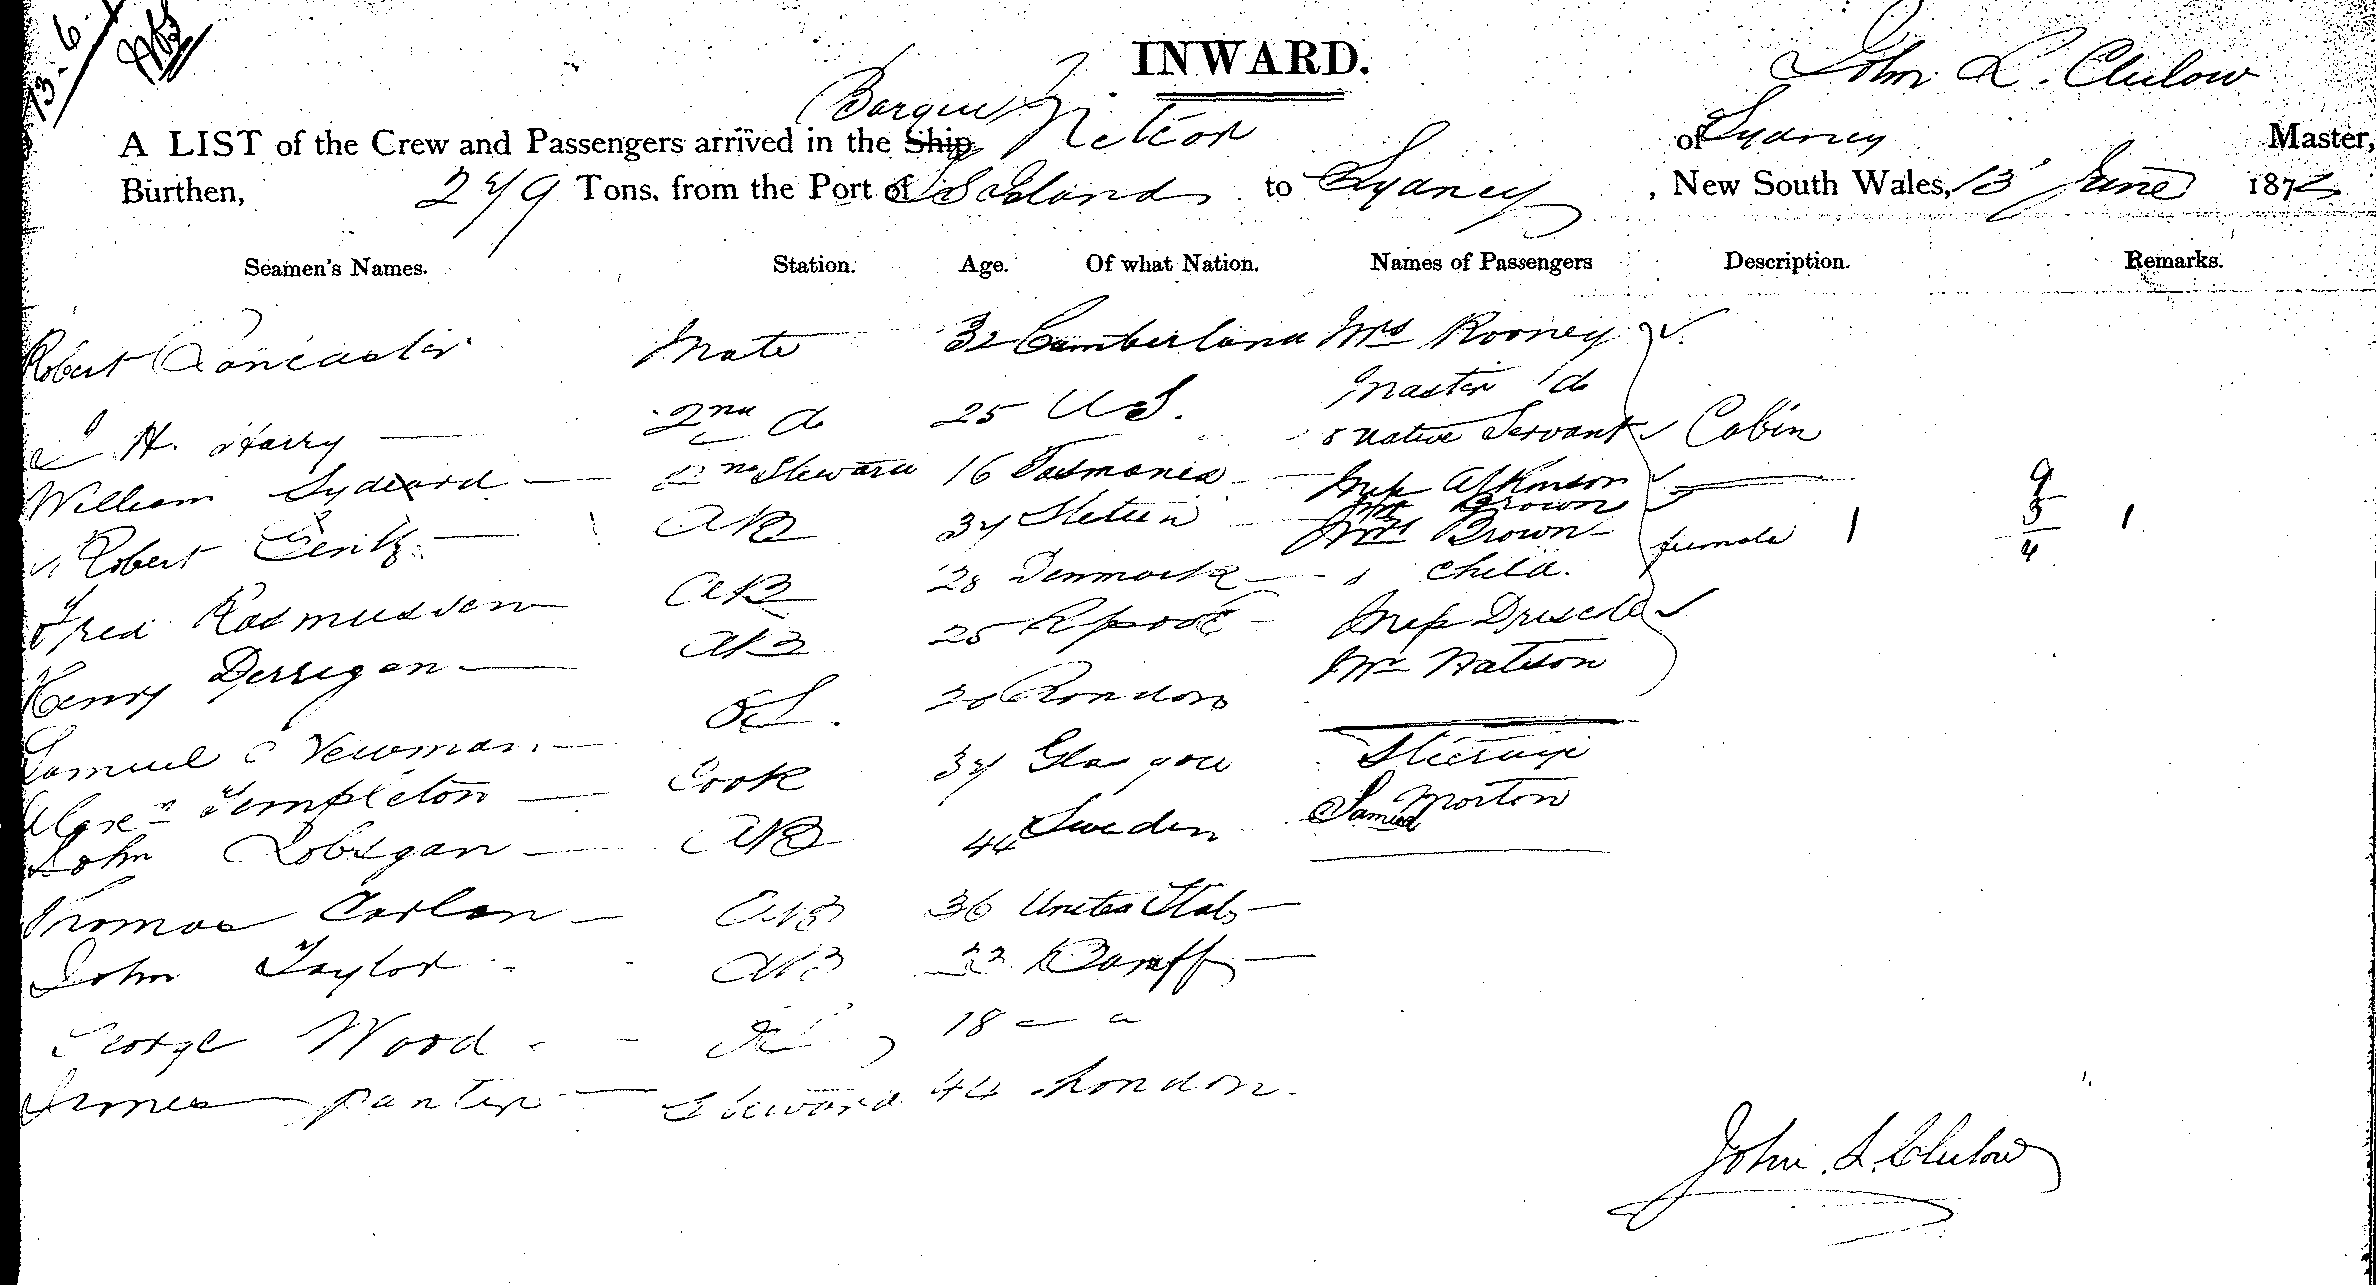 13-6
INWARD.
John L. Clulow
Barque
A LIST of the Crew and Passengers arrived in the Ship of Sydney Master,
Burthen, Tons, from the Port of to Sydney, New South Wales, 13 June 187
Seamen's Names. Station. Age. Of what Nation. Names of Passengers Description. Remarks.
Robert Lancaster Mate 32 Cumberland Mrs Rooney
Master do
H. Harry 2nd do 25 U S.
native Servant Cabin
William 2nd Steward 16 Tasmania Miss Atkinson
Brown
Robert AB Stetten Mrs Brown female 1 1
9
5
4
Fred Rasmussen AB 28 Denmark child.
Henry Derrigan AB 25 Lpool Miss Driscoll
Mr Watson
Samuel C Newman OS. 20 London
Alexr Templeton Cook Glasgow Steerage
John AB 44 Sweden Samuel Morton
Thomas Carlon AB 36 United States
John Taylor AB 22 Banff
George Wood OS 18
James Panter Steward 44 London.
John. L. Clulow